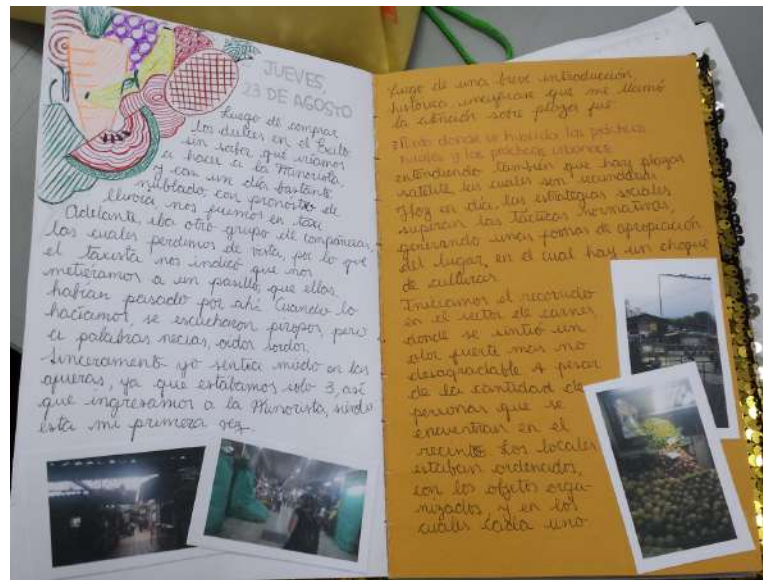 JUEVES,
23 DE AGOSTO
Luego de comprar
los dulces en el Exito
sin saber qué iríamos
a hacer a la Minorista,
y con un día bastante
nublado, con pronóstico de
lluvia nos fuimos en taxi
Adelante iba otro grupo de compañeras,
las cuales perdimos de vista, por lo que
el taxista nos indicó que nos
metiéramos a un pasillo, que ellas
habían pasado por ahí. Cuando lo
hacíamos, se escucharon piropos, pero
a palabras necias, oídos sordos.
Sinceramente yo sentía miedo en las
afueras, ya que estábamos solo 3, así
que ingresamos a la Minorista, siendo
esta mi primera vez.
Luego de una breve introducción
histórica, una frase que me llamó
la atención sobre plazas fue:
donde se hibrida las prácticas
rurales y las prácticas urbanas
entendiendo también que hay plazas
satélite las cuales son secundarias.
Hoy en día, las estrategias sociales
superan las tácticas normativas,
generando unas formas de apropiación
del lugar, en el cual hay un choque
de culturas.
Iniciamos el recorrido
en el sector de carnes,
donde se sintió un
olor fuerte mas no
desagradable a pesar
de la cantidad de
personas que se
encuentran en el
recinto. Los locales
estaban ordenados,
con los objetos orga-
nizados, y en los
cuales cada uno